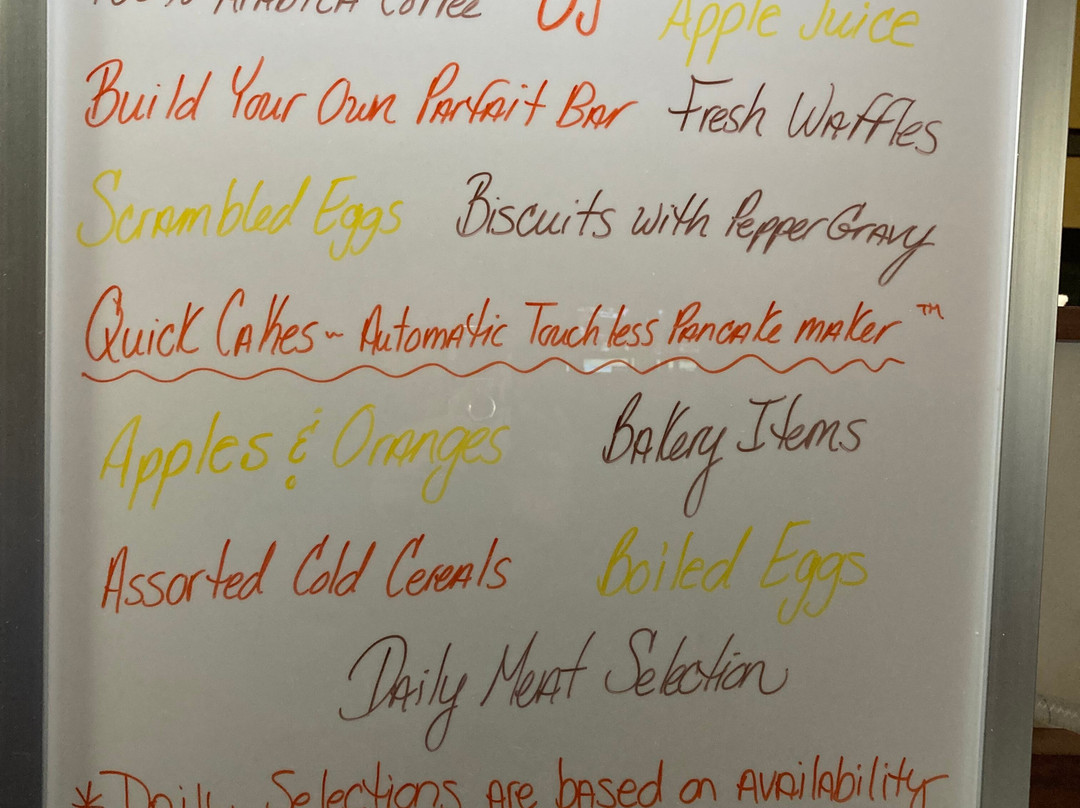 100% Arabica Coffee OJ Apple Juice
Build Your Own Parfait Bar Fresh Waffles
Scrambled Eggs Biscuits with Pepper Gravy
Quick Cakes ~ Automatic Touchless Pancake maker ™
Apples & Oranges Bakery Items
Assorted Cold Cereals Boiled Eggs
Daily Meat Selection
* Daily Selections are based on availability